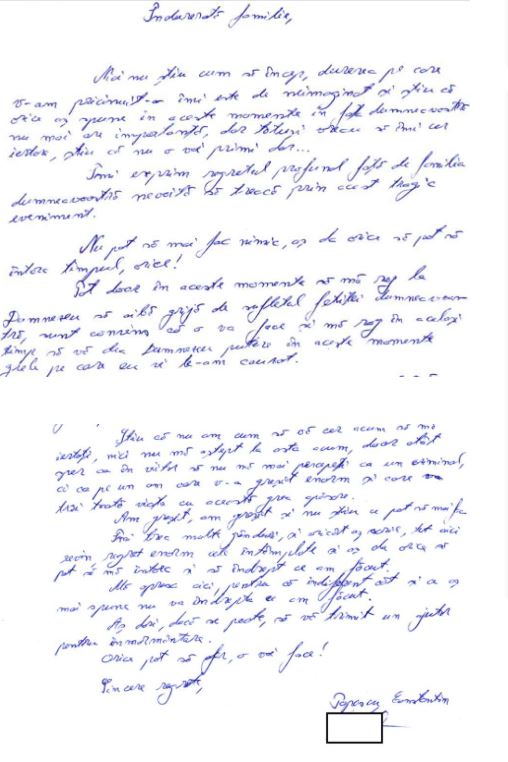 Îndurerată familie,
Nici nu știu cum să încep, durerea pe care
v-am pricinuit-o îmi este de neimaginat și știu că
orice aș spune în aceste momente în fața dumneavoastră
nu mai are importanță, dar totuși vreau să îmi cer
iertare, știu că nu o voi primi dar...
Îmi exprim regretul profund față de familia
dumneavoastră nevoită să treacă prin acest tragic
eveniment.
Nu pot să mai fac nimic, aș da orice să pot să
întorc timpul, orice!
Pot doar în aceste momente să mă rog la
Dumnezeu să aibă grijă de sufletul fetiței dumneavoas-
tră, sunt convins că o va face și mă rog în același
timp să vă dea Dumnezeu putere în aceste momente
grele pe care eu vi le-am cauzat.
Știu că nu am cum să vă cer acum să mă
iertați, nici nu mă aștept la asta acum, doar atât
sper ca în viitor să nu mă mai percepeți ca un criminal,
ci ca pe un om care v-a greșit enorm și care va
trăi toată viața cu această grea apăsare.
Am greșit, am greșit și nu știu ce pot să mai fac
Îmi trec multe gânduri, și oricât aș scrie, tot aici
revin regret enorm cele întâmplate și aș da orice să
pot să mă întorc și să îndrept ce am făcut.
Mă opresc aici, pentru că indiferent cât și ce aș
mai spune nu va îndrepta ce am făcut.
Aș dori, dacă se poate, să vă trimit un ajutor
pentru înmormântare.
Orice pot să ofer, o voi face!
Sincere regrete,
Popescu Constantin